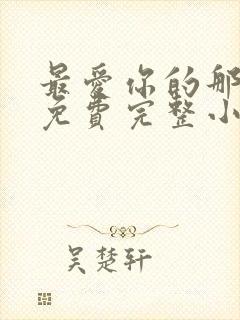 最愛你的那
免費完整小
吴楚轩